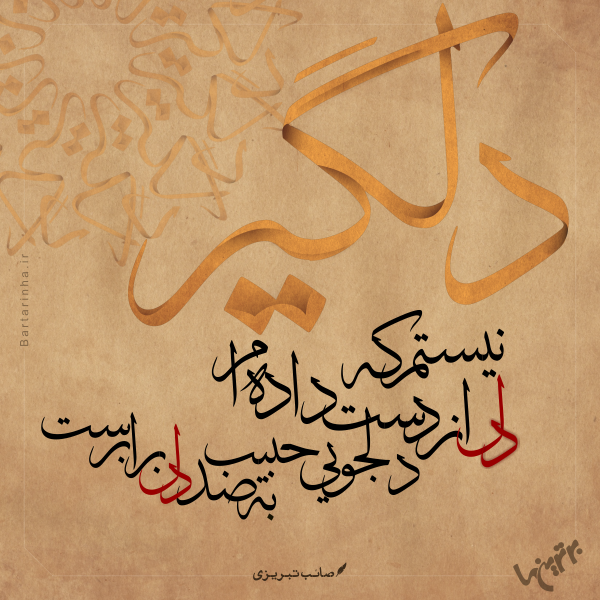 دلگیر
نیستم که
دل از دست داده ام
دلجویی حبیب
به صد دل برابرست
صائب تبریزی
Bartarinha.ir
برترین‌ها